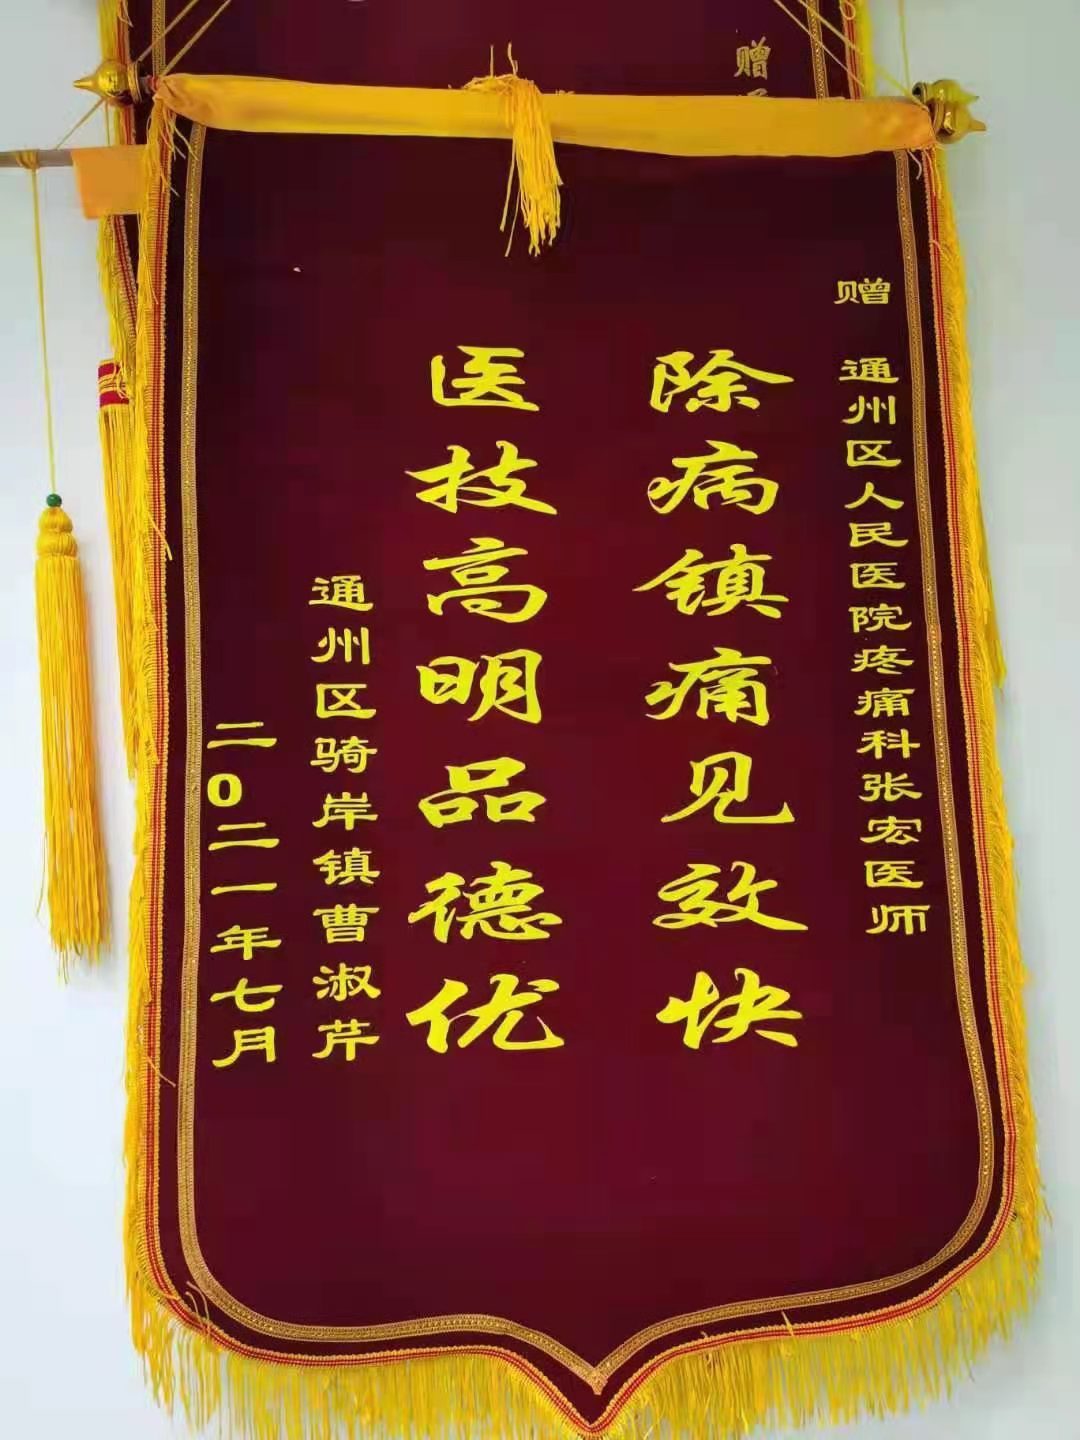 赠
赠
通州区人民医院疼痛科张宏医师
除病镇痛见效快
医技高明品德优
通州区骑岸镇曹淑芹
二0二一年七月